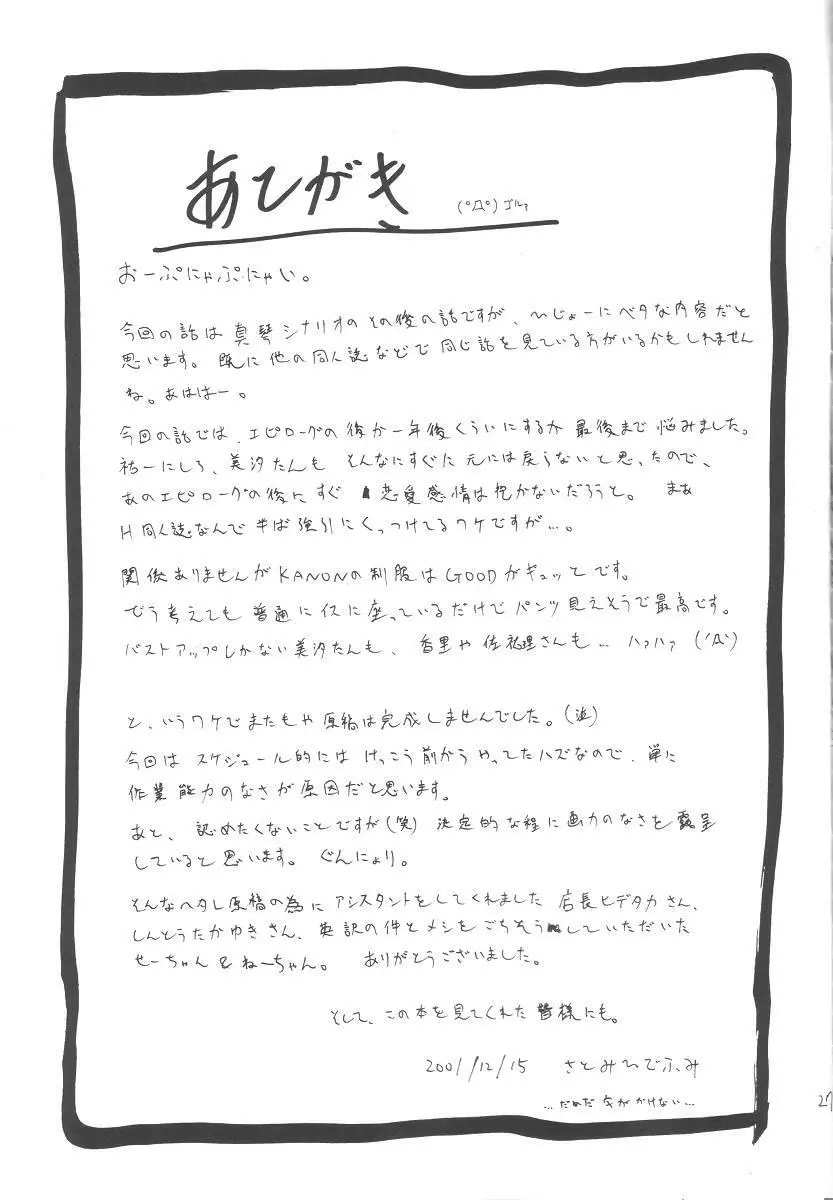 あとがき (ﾟДﾟ)ｺﾞﾙｧ
おーぷにゃぷにゃい。
今回の話は真琴シナリオのその後の話ですが、ひじょーにベタな内容だと
思います。既に他の同人誌などで同じ話を見ている方がいるかもしれません
ね。あははー。
今回の話では、エピローグの後か一年後くらいにするか最後まで悩みました。
祐一にしろ、美汐たんも そんなにすぐに元には戻らないと思ったので、
あのエピローグの後にすぐ 恋愛感情は抱かないだろうと。 まぁ
H同人誌なんで半ば強引にくっつけてるワケですが…。
関係ありませんがKANONの制服はGOODがギュッとです。
どう考えても普通にイスに座っているだけでパンツ見えそうで最高です。
バストアップしかない美汐たんも、香里や佐祐理さんも… ハァハァ (´Д`)
と、いうワケでまたもや原稿は完成しませんでした。(泣)
今回はスケジュール的にはけっこう前からやってたハズなので、単に
作業能力のなさが原因だと思います。
あと、認めたくないことですが(笑) 決定的な程に画力のなさを露呈
していると思います。ぐんにょり。
そんなヘタレ原稿の為にアシスタントをしてくれました 店長ヒデタカさん、
しんとうたかゆきさん、英訳の件とメシをごちそうしていただいた
せーちゃん&ねーちゃん。 ありがとうございました。
そして、この本を見てくれた皆様にも。
2001/12/15 さとみひでふみ
…だめだ 字が かけない…
27